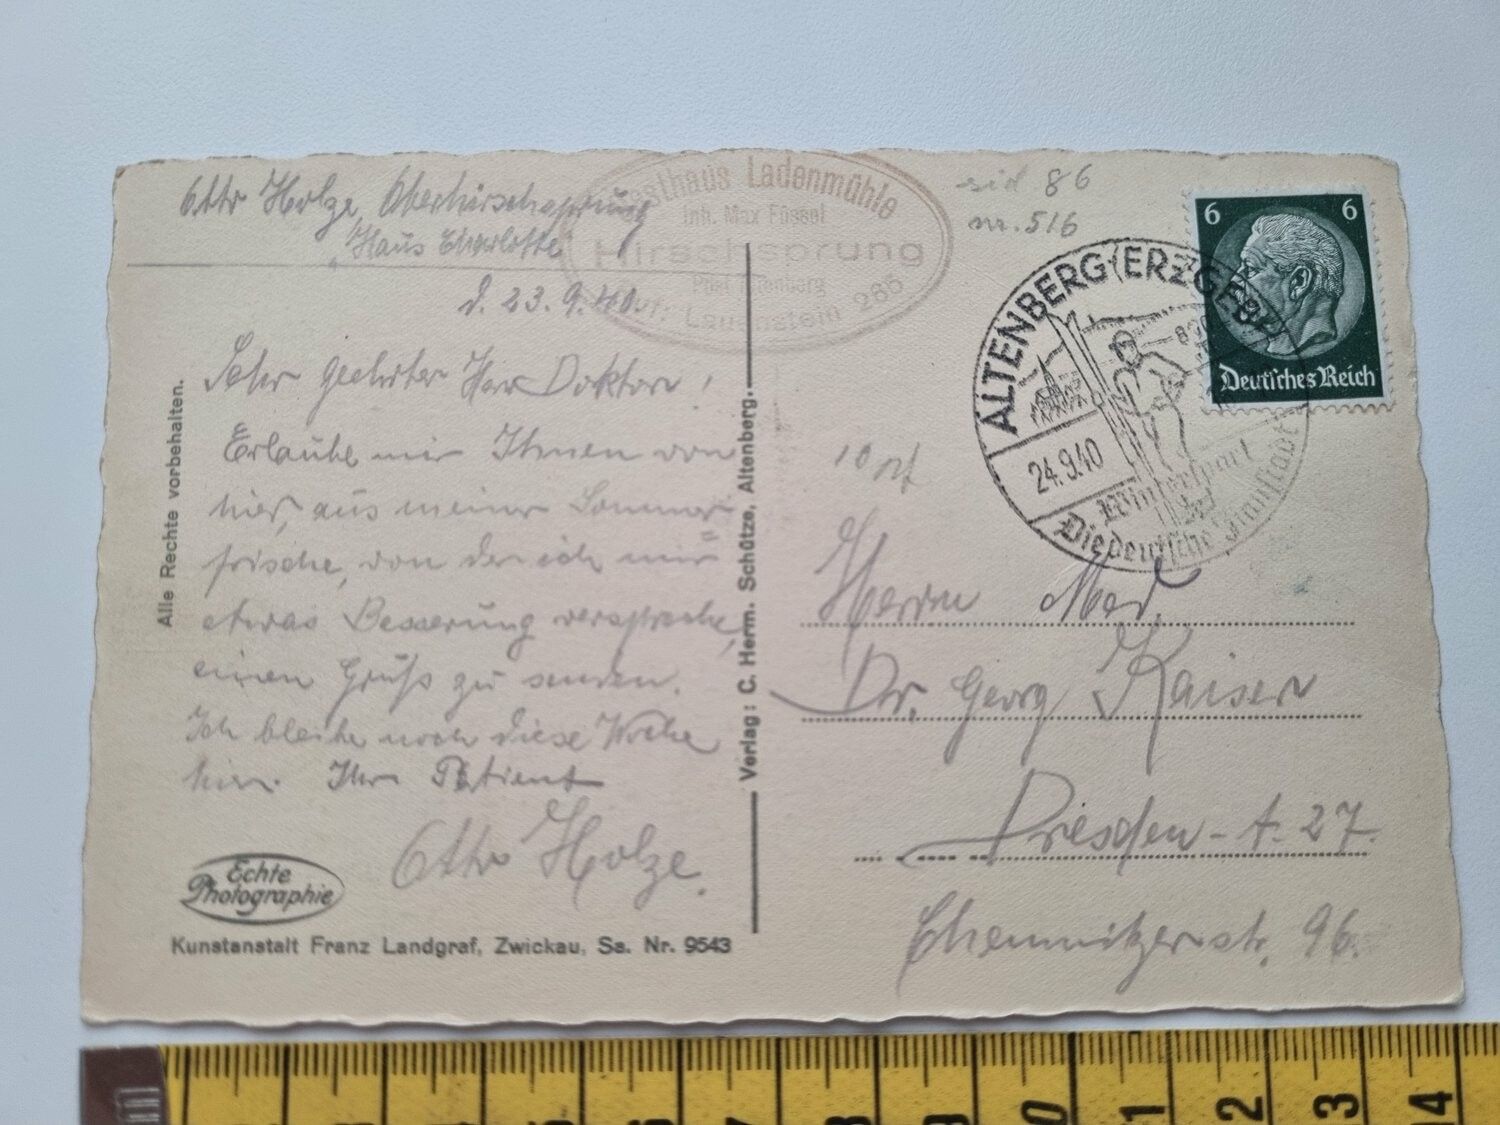 Otto Holze, Oberhirschsprung
Haus Charlotte
d. 23.9.40.
Sehr geehrter Herr Doktor!
Erlaube mir Ihnen von
hier, aus meiner Sommer=
frische, von der ich mir
etwas Besserung verspreche,
einen Gruß zu senden.
Ich bleibe noch diese Woche
hier. Ihr Patient
Otto Holze.
Alle Rechte vorbehalten.
Echte
Photographie
Kunstanstalt Franz Landgraf, Zwickau, Sa. Nr. 9543
Verlag: C. Herm. Schütze, Altenberg.
Gasthaus Ladenmühle
Inh. Max Füssel
Hirschsprung
Post Altenberg
Lauenstein 265
86
nr. 516
6 6
Deutsches Reich
ALTENBERG (ERZGEB)
24.9.40
Wintersport
Die deutsche
10 Pf
Herrn Med.
Dr. Georg Kaiser
Dresden-A. 27.
Chemnitzerstr. 96.
10 11 12 13 14